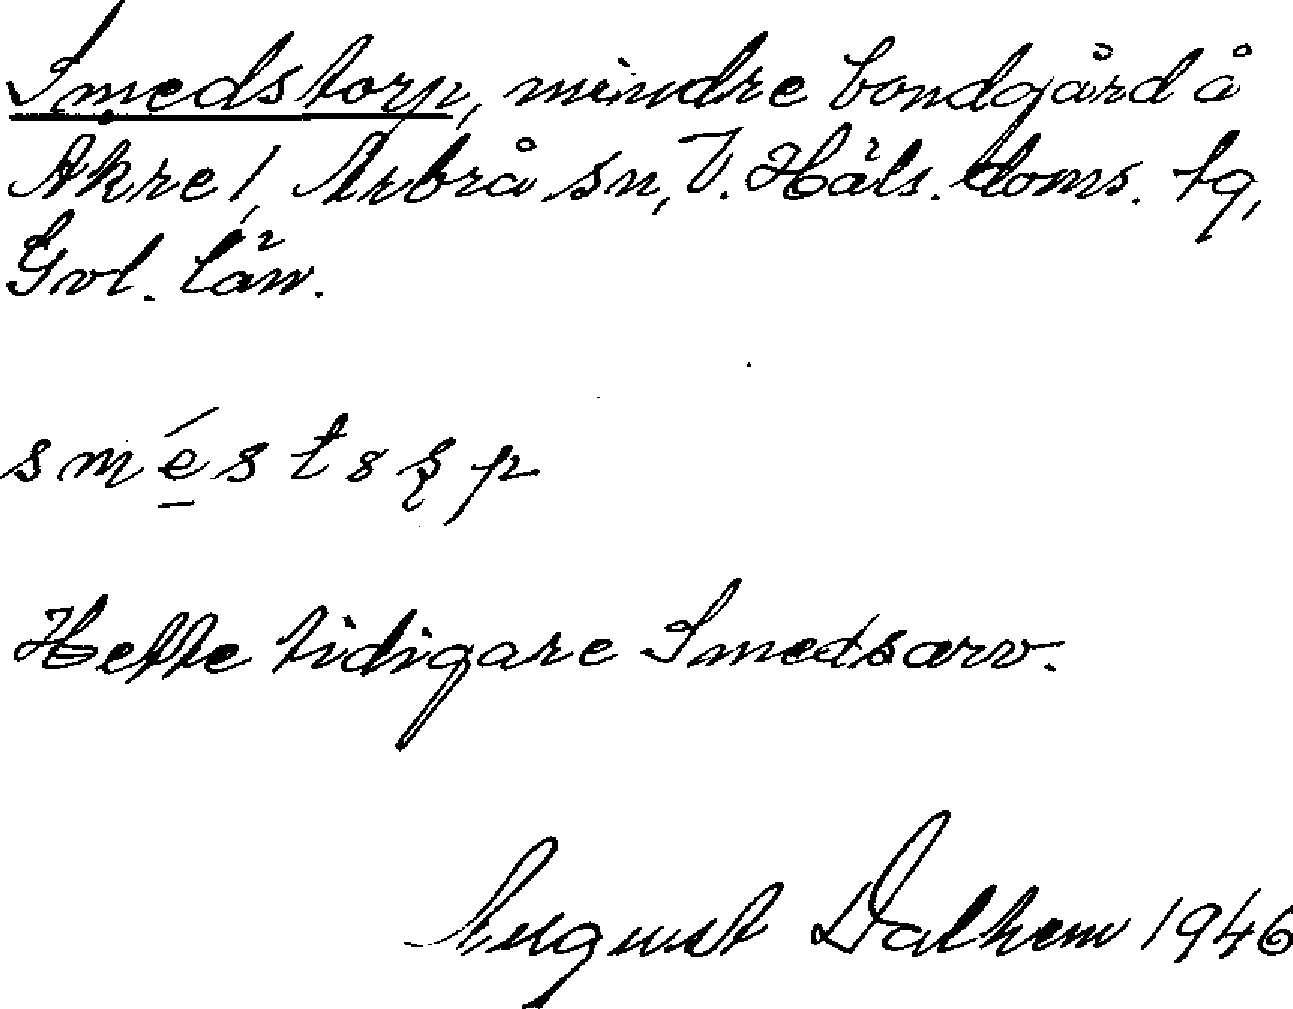 Smedstorp, mindre bondgård å
Åkre 1, Arbrå sn, V. Häls. doms. tg,
Gvl. län.
Hette tidigare Smedsarv.
August Dalhem 1946